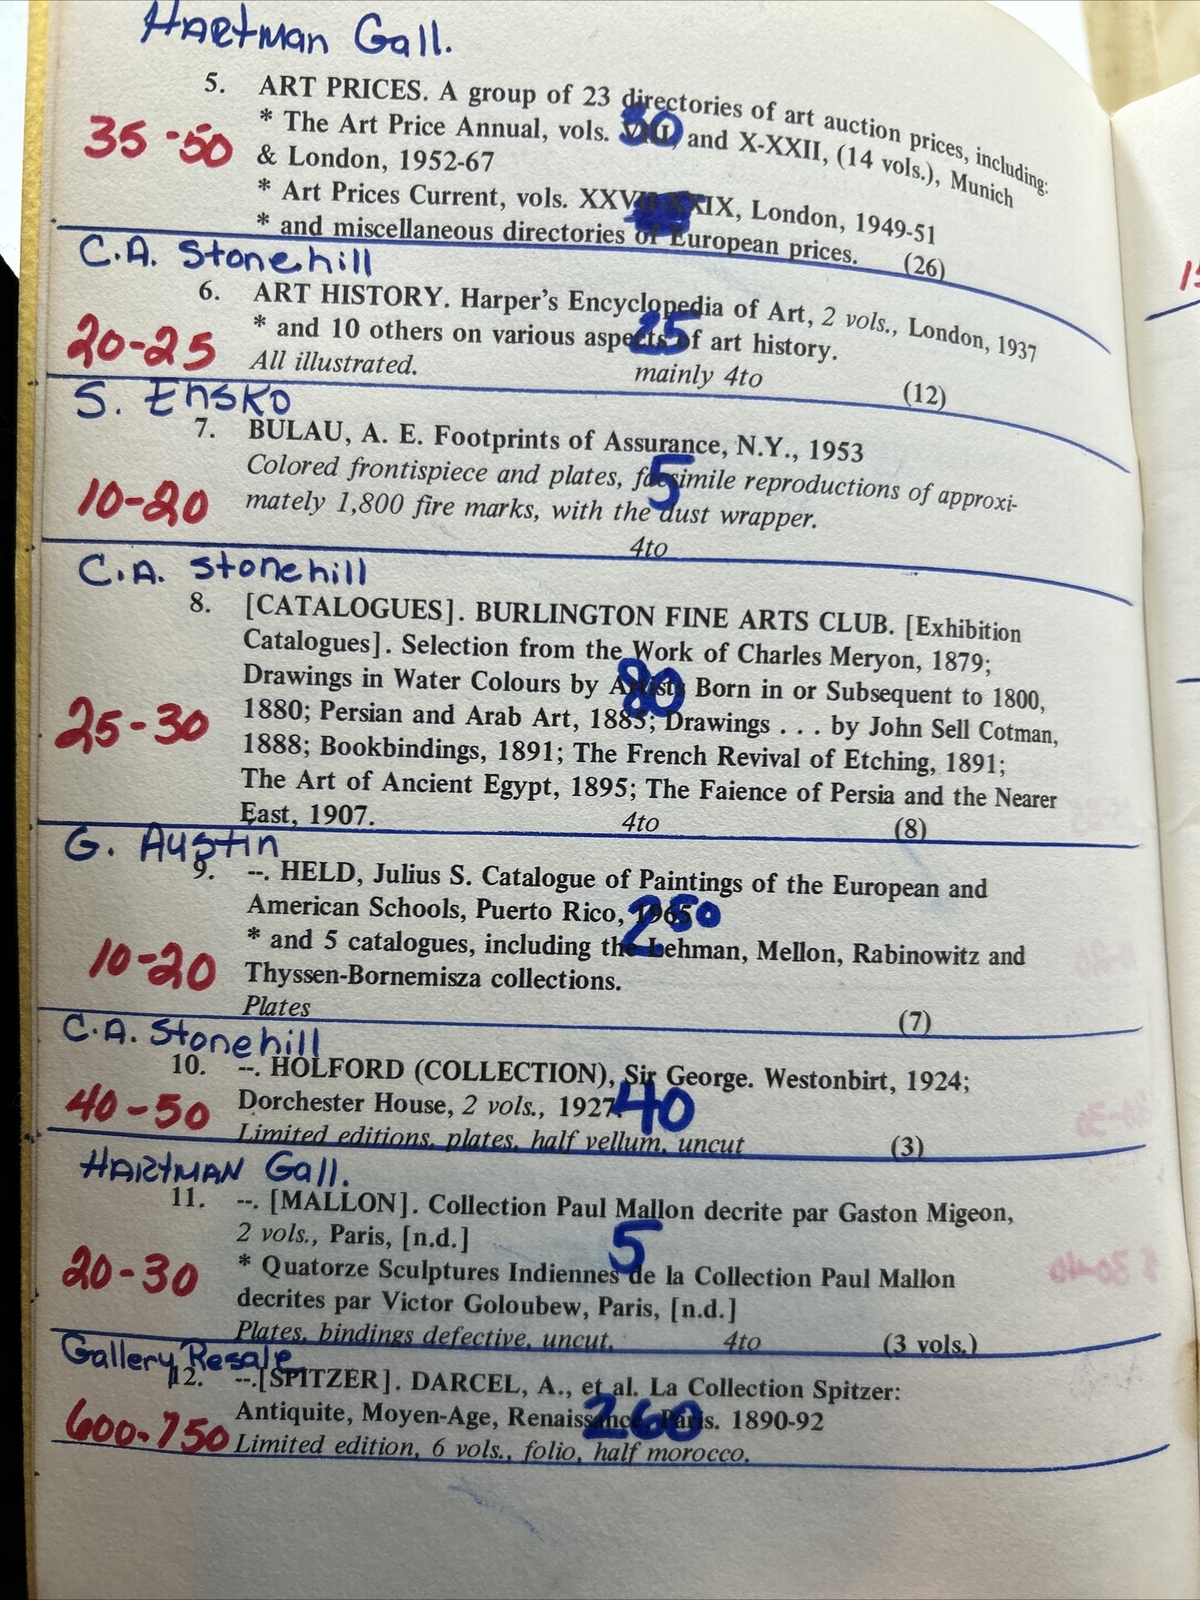 HARtMan Gall.
5. ART PRICES. A group of 23 directories of art auction prices, including:
35-50
* The Art Price Annual, vols. VIII, and X-XXII, (14 vols.), Munich
30
& London, 1952-67
* Art Prices Current, vols. XXVII-XXIX, London, 1949-51
* and miscellaneous directories of European prices. (26)
C.A. Stonehill
6. ART HISTORY. Harper's Encyclopedia of Art, 2 vols., London, 1937
20-25
* and 10 others on various aspects of art history.
25
All illustrated. mainly 4to (12)
S. Ensko
7. BULAU, A. E. Footprints of Assurance, N.Y., 1953
Colored frontispiece and plates, facsimile reproductions of approxi-
5
10-20
mately 1,800 fire marks, with the dust wrapper.
4to
C.A. Stonehill
8. [CATALOGUES]. BURLINGTON FINE ARTS CLUB. [Exhibition
Catalogues]. Selection from the Work of Charles Meryon, 1879;
Drawings in Water Colours by Artists Born in or Subsequent to 1800,
80
25-30
1880; Persian and Arab Art, 1885; Drawings . . . by John Sell Cotman,
1888; Bookbindings, 1891; The French Revival of Etching, 1891;
The Art of Ancient Egypt, 1895; The Faience of Persia and the Nearer
East, 1907. 4to (8)
G. Austin
9. --. HELD, Julius S. Catalogue of Paintings of the European and
American Schools, Puerto Rico, 1965
2 50
10-20
* and 5 catalogues, including the Lehman, Mellon, Rabinowitz and
Thyssen-Bornemisza collections.
Plates (7)
C.A. Stonehill
10. --. HOLFORD (COLLECTION), Sir George. Westonbirt, 1924;
40-50
Dorchester House, 2 vols., 1927.
40
Limited editions, plates, half vellum, uncut (3)
HARtMAN Gall.
11. --. [MALLON]. Collection Paul Mallon decrite par Gaston Migeon,
2 vols., Paris, [n.d.]
5
20-30
* Quatorze Sculptures Indiennes de la Collection Paul Mallon
decrites par Victor Goloubew, Paris, [n.d.]
Plates, bindings defective, uncut. 4to (3 vols.)
Gallery Resale
12. --.[SPITZER]. DARCEL, A., et al. La Collection Spitzer:
Antiquite, Moyen-Age, Renaissance, Paris. 1890-92
260
600-750
Limited edition, 6 vols., folio, half morocco.